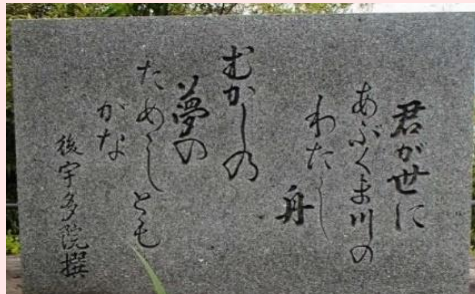 君が世に
あぶくま川の
わたし
舟
むかしの
夢の
ためしとも
がな
後宇多院撰